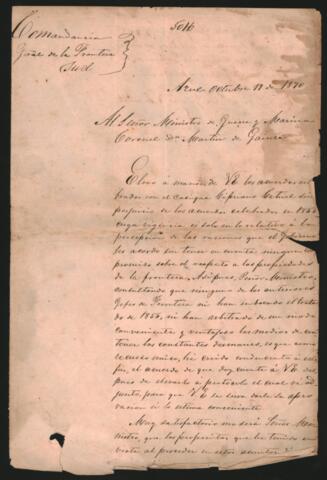 Comandancia
Gral de la Frontera
Sud
Azul Octubre 12 de 1870
Al Señor Ministro de Guerra y Marina
Coronel Dn Martin de Gainza
Elevo á manos de VE los acuerdos cele
brados con el cacique Cipriano Catriel sin
perjuicio de los acuerdos celebrados en 1856
cuya vigencia es solo en lo relativo á la
percepcion de las raciones que el Gobierno
les acordó sin tener en cuenta ningun com
promiso sobre el respeto a las propiedades
de la frontera. Asi pues, Señor Ministro,
consultando que ninguno de los anteriores
Jefes de Frontera ni han
de 1856, ni han arbitrado de un modo
conveniente y ventajoso los medios de con
tener los constantes desmanes, es que como
recurso unico, he creido conducente á este
fin, el acuerdo de que doy cuenta á VE des
pues de elevarlo a protocolo el cual va ad
junto, para que VE se sirva darle su apro
vacion si lo estima conveniente.
Muy satisfactorio me será Señor Mi
nistro, que los propositos que he tenido en
vista al proceder en este asunto